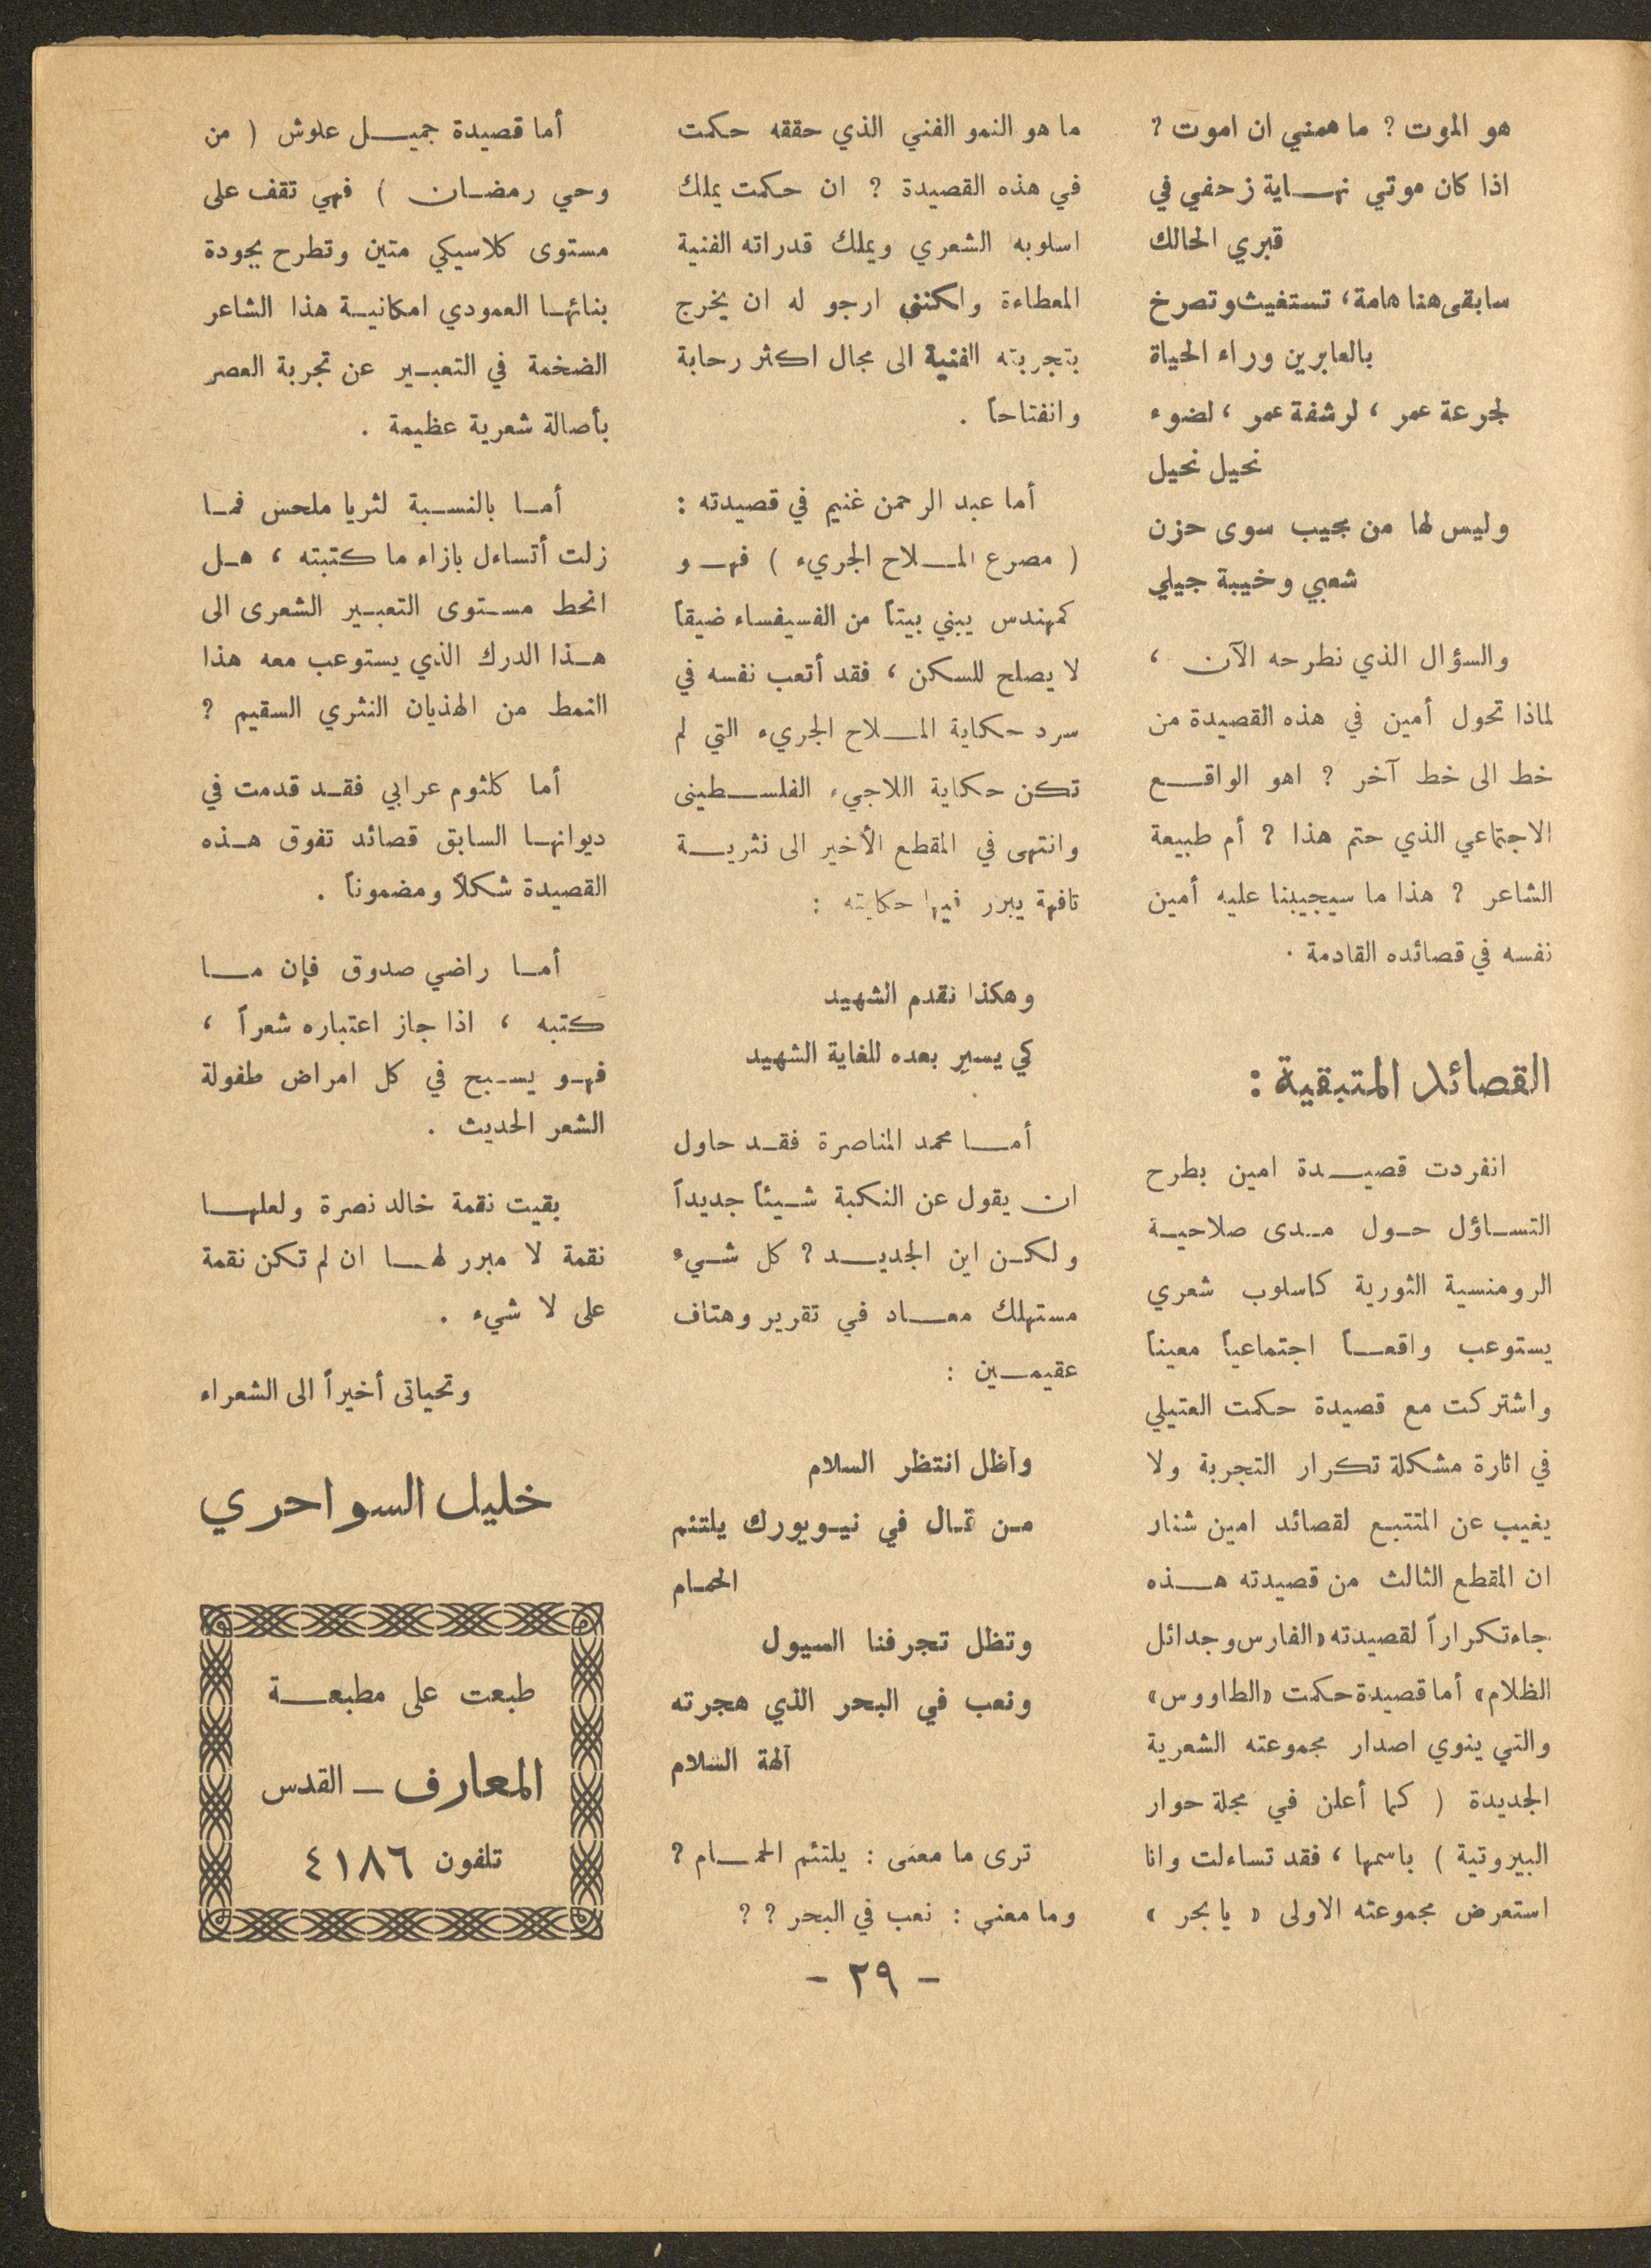 هو الموت ? ما همني ان اموت ?
اذا كان موتي نهاية زحفي في
قبري الحالك
سابقى هنا هامة، تستغيث وتصرخ
بالعابرين وراء الحياة
لجرعة عمر ، لرشفة عمر ، لضوء
نحيل نحيل
وليس لها من مجيب سوى حزن
شعبي وخيبة جيلي
والسؤال الذي نطرحه الآن ،
لماذا تحول أمين في هذه القصيدة من
خط الى خط آخر ? اهو الواقع
الاجتماعي الذي حتم هذا ? أم طبيعة
الشاعر ? هذا ما سيجيبنا عليه أمين
نفسه في قصائده القادمة .
القصائد المتبقية :
انفردت قصيدة امين بطرح
التساؤل حول مدى صلاحية
الرومنسية الثورية كاسلوب شعري
يستوعب واقعاً اجتماعياً معيناً
واشتركت مع قصيدة حكمت العتيلي
في اثارة مشكلة تكرار التجربة ولا
يغيب عن المتتبع لقصائد امين شنار
ان المقطع الثالث من قصيدته هذه
جاء تكراراً لقصيدته «الفارس وجدائل
الظلام» أما قصيدة حكمت «الطاووس»
والتي ينوي اصدار مجموعته الشعرية
الجديدة ( كما أعلن في مجلة حوار
البيروتية ) باسمها ، فقد تساءلت وانا
استعرض مجموعته الاولى « يا بحر »
ما هو النمو الفني الذي حققه حكمت
في هذه القصيدة ? ان حكمت يملك
اسلوبه الشعري ويملك قدراته الفنية
المعطاءة ولكنني ارجو له ان يخرج
بتجربته الفنية الى مجال اكثر رحابة
وانفتاحاً .
أما عبد الرحمن غنيم في قصيدته :
( مصرع الملاح الجريء ) فهو
كمهندس يبني بيتاً من الفسيفساء ضيقاً
لا يصلح للسكن ، فقد أتعب نفسه في
سرد حكاية الملاح الجريء التي لم
تكن حكاية اللاجيء الفلسطينى
وانتهى في المقطع الأخير الى نثرية
تافهة يبرر فيها حكايته :
وهكذا نقدم الشهيد
كي يسير بعده للغاية الشهيد
أما محمد المناصرة فقد حاول
ان يقول عن النكبة شيئاً جديداً
ولكن اين الجديد ? كل شيء
مستهلك معاد في تقرير وهتاف
عقيمين :
واظل انتظر السلام
من قال في نيويورك يلتئم
الحمام
وتظل تجرفنا السيول
ونعب في البحر الذي هجرته
آلهة السلام
ترى ما معنى : يلتئم الحمام ?
وما معنى : نعب في البحر ? ?
أما قصيدة جميل علوش ( من
وحي رمضان ) فهي تقف على
مستوى كلاسيكي متين وتطرح بجودة
بنائها العمودي امكانية هذا الشاعر
الضخمة في التعبير عن تجربة العصر
بأصالة شعرية عظيمة .
أما بالنسبة لثريا ملحس فما
زلت أتساءل بازاء ما كتبته ، هل
انحط مستوى التعبير الشعرى الى
هذا الدرك الذي يستوعب معه هذا
النمط من الهذيان النثري السقيم ?
أما كلثوم عرابي فقد قدمت في
ديوانها السابق قصائد تفوق هذه
القصيدة شكلاً ومضموناً .
أما راضي صدوق فإن ما
كتبه ، اذا جاز اعتباره شعراً ،
فهو يسبح في كل امراض طفولة
الشعر الحديث .
بقيت نقمة خالد نصرة ولعلها
نقمة لا مبرر لها ان لم تكن نقمة
على لا شيء .
وتحياتى أخيراً الى الشعراء
خليل السواحري
طبعت على مطبعة
المعارف – القدس
تلفون ٤١٨٦
- ٢٩ -